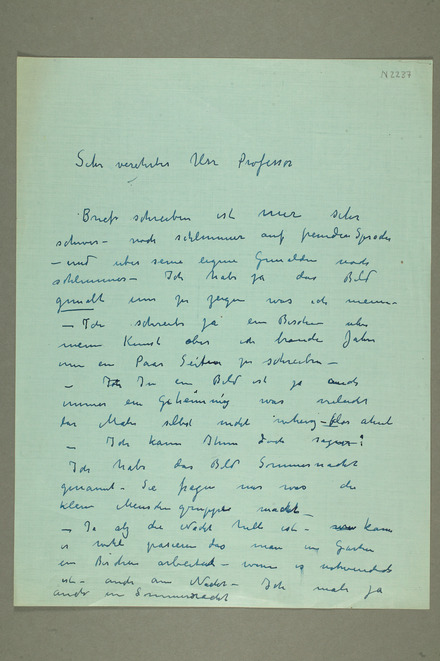 N 2237
Sehr verehrter Herr Professor
Briefe schreiben ist mir sehr
schwer – noch schlimmer auf fremder Sprache
– und uber seine eigene Gemälden noch
schlimmer – Ich habe ja das Bild
gemalt um zu zeigen was ich meine –
– Ich schreibe ja ein Bischen uber
meine Kunst aber ich brauche Jahre
um ein Paar Seiten zu schreiben –
– In ein Bild ist ja auch
immer ein Geheimniss was vieleicht
der Maler selbst nicht
– Ich kann Ihnen doch sagen:
Ich habe das Bild Sommernacht
genannt – Sie fragen mir was die
kleine Menschengruppe macht –
– Ja als die Nacht hell ist – kann
es wohl passieren das man im Garten
ein Bischen arbeitet – wenn es notwendich
ist – auch am Nacht – Ich male ja
auch in Sommernacht